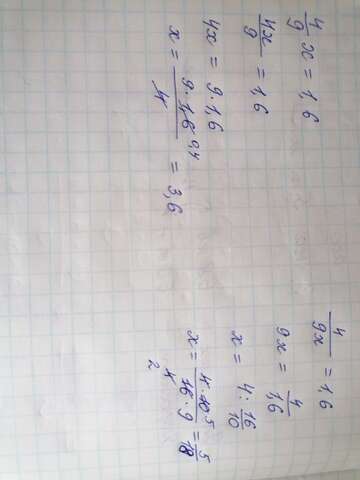 4/9 x = 1,6
4x/9 = 1,6
4x = 9·1,6
x = 9·1,6 0,4/4 = 3,6
4/9x = 1,6
9x = 4/1,6
x = 4 : 16/10
x = 4·10 5/16·9 4 2 = 5/18